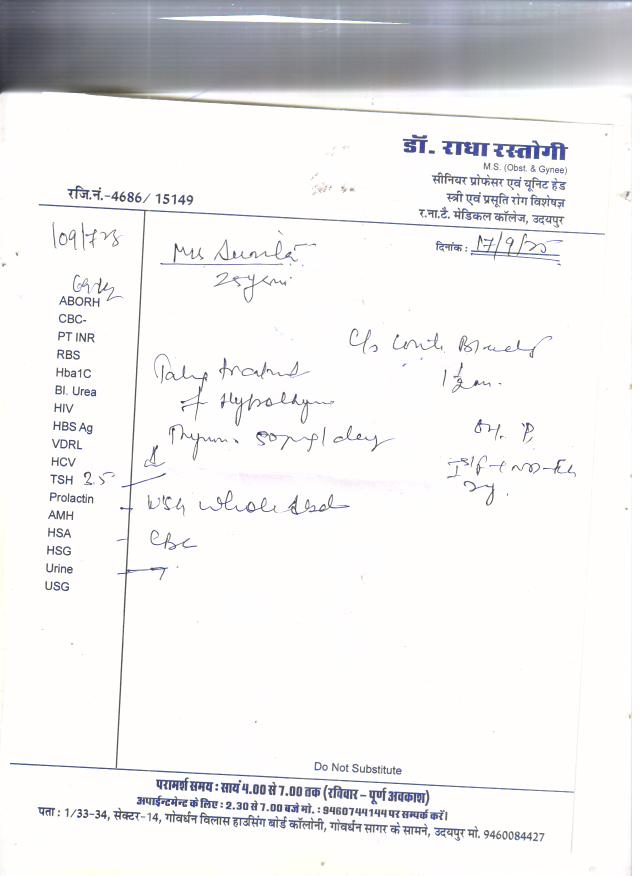 डॉ. राधा रस्तोगी
M.S. (Obst. & Gynee)
सीनियर प्रोफेसर एवं यूनिट हेड
स्त्री एवं प्रसूति रोग विशेषज्ञ
र.ना.टै. मेडिकल कॉलेज, उदयपुर
रजि.नं.-4686/ 15149
दिनांक : 17/9/25
109/73
Mrs Sunita
ABORH
CBC-
PT INR
RBS
Hba1C
Bl. Urea
HIV
HBS Ag
VDRL
HCV
TSH 2.5
Prolactin
AMH
HSA
HSG
Urine
USG
C/o
1½ m.
Taking
of
Thyrox. 50 mg/day
USG whole Abd
CBC
Do Not Substitute
परामर्श समय : सायं 4.00 से 7.00 तक (रविवार – पूर्ण अवकाश)
अपाईन्टमेन्ट के लिए : 2.30 से 7.00 बजे मो. : 9460744144 पर सम्पर्क करें।
पता : 1/33-34, सेक्टर-14, गोवर्धन विलास हाउसिंग बोर्ड कॉलोनी, गोवर्धन सागर के सामने, उदयपुर मो. 9460084427